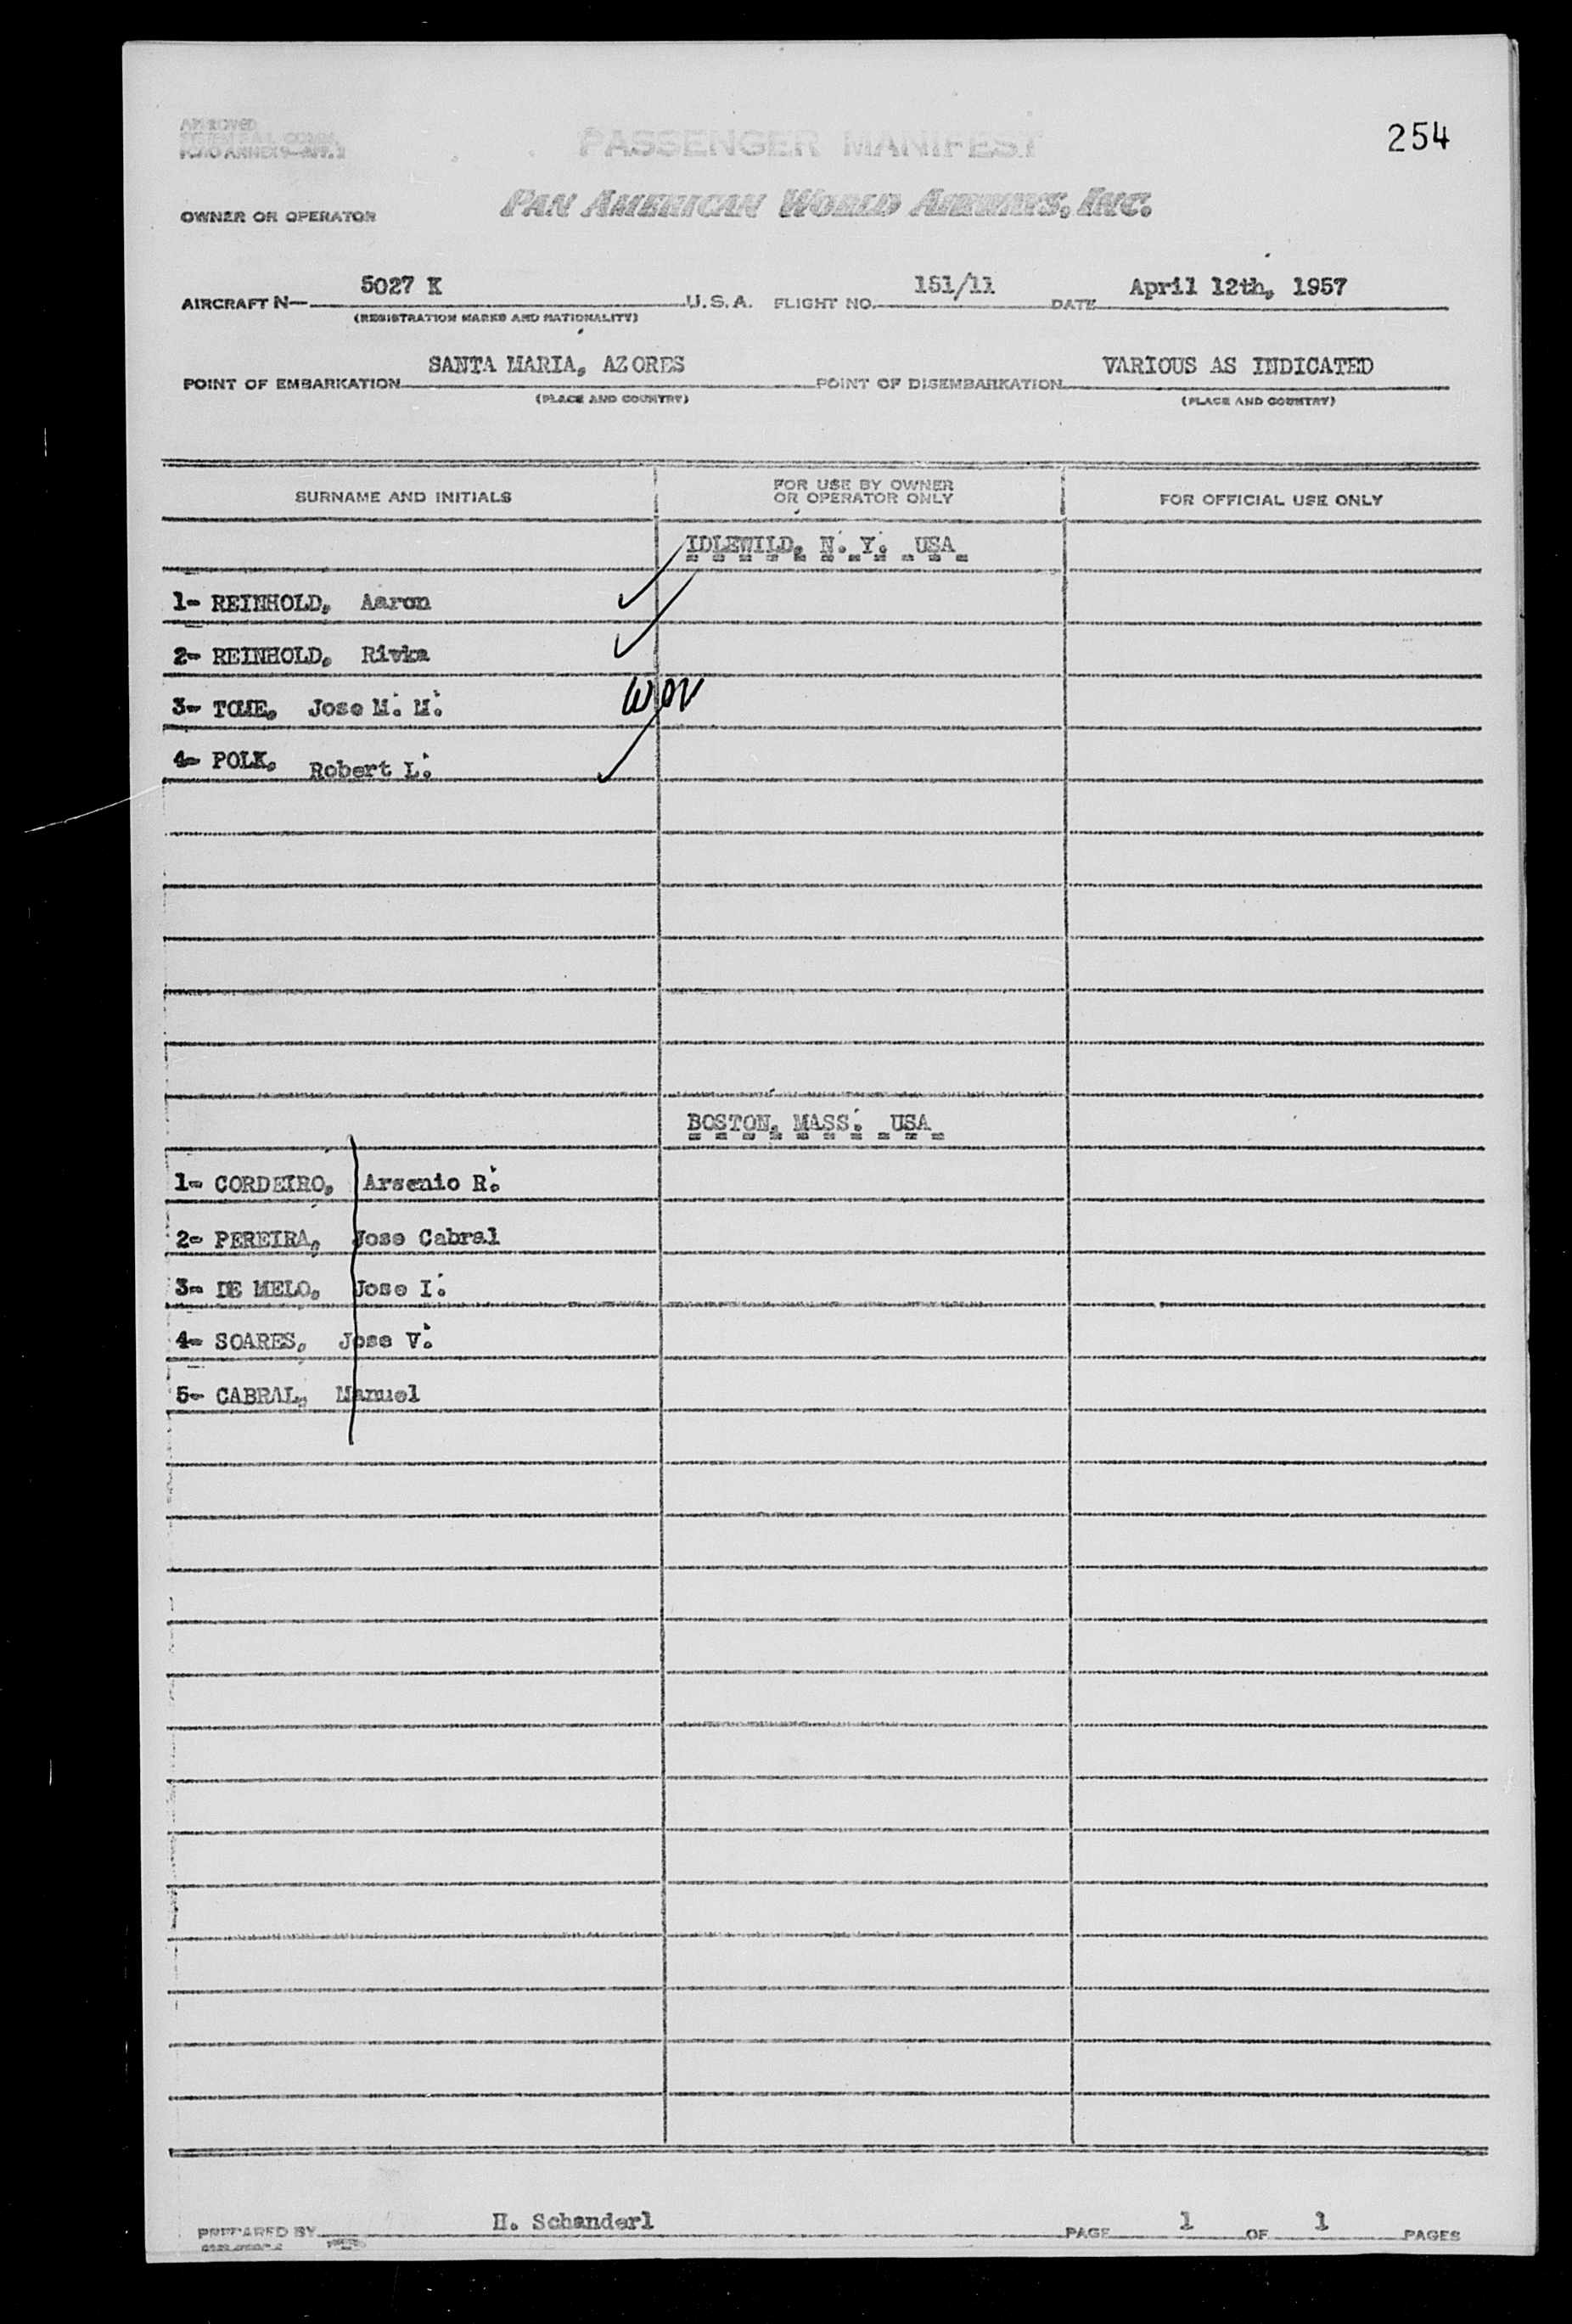 254
APPROVED
PASSENGER MANIFEST
OWNER OR OPERATOR PAN AMERICAN WORLD AIRWAYS, INC.
AIRCRAFT N— 5027 K U.S.A. FLIGHT NO. 151/11 DATE April 12th, 1957
(REGISTRATION MARKS AND NATIONALITY)
POINT OF EMBARKATION SANTA MARIA, AZORES POINT OF DISEMBARKATION VARIOUS AS INDICATED
(PLACE AND COUNTRY) (PLACE AND COUNTRY)
SURNAME AND INITIALS FOR USE BY OWNER OR OPERATOR ONLY FOR OFFICIAL USE ONLY
IDLEWILD, N. Y. USA
1- REINHOLD, Aaron
2- REINHOLD, Rivka
3- TOME, Jose M. M.
4- POLK, Robert L.
BOSTON, MASS. USA
1- CORDEIRO, Arsenio R.
2- PEREIRA, Jose Cabral
3- DE MELO, Jose I.
4- SOARES, Jose V.
5- CABRAL, Manuel
PREPARED BY H. Schanderl PAGE 1 OF 1 PAGES